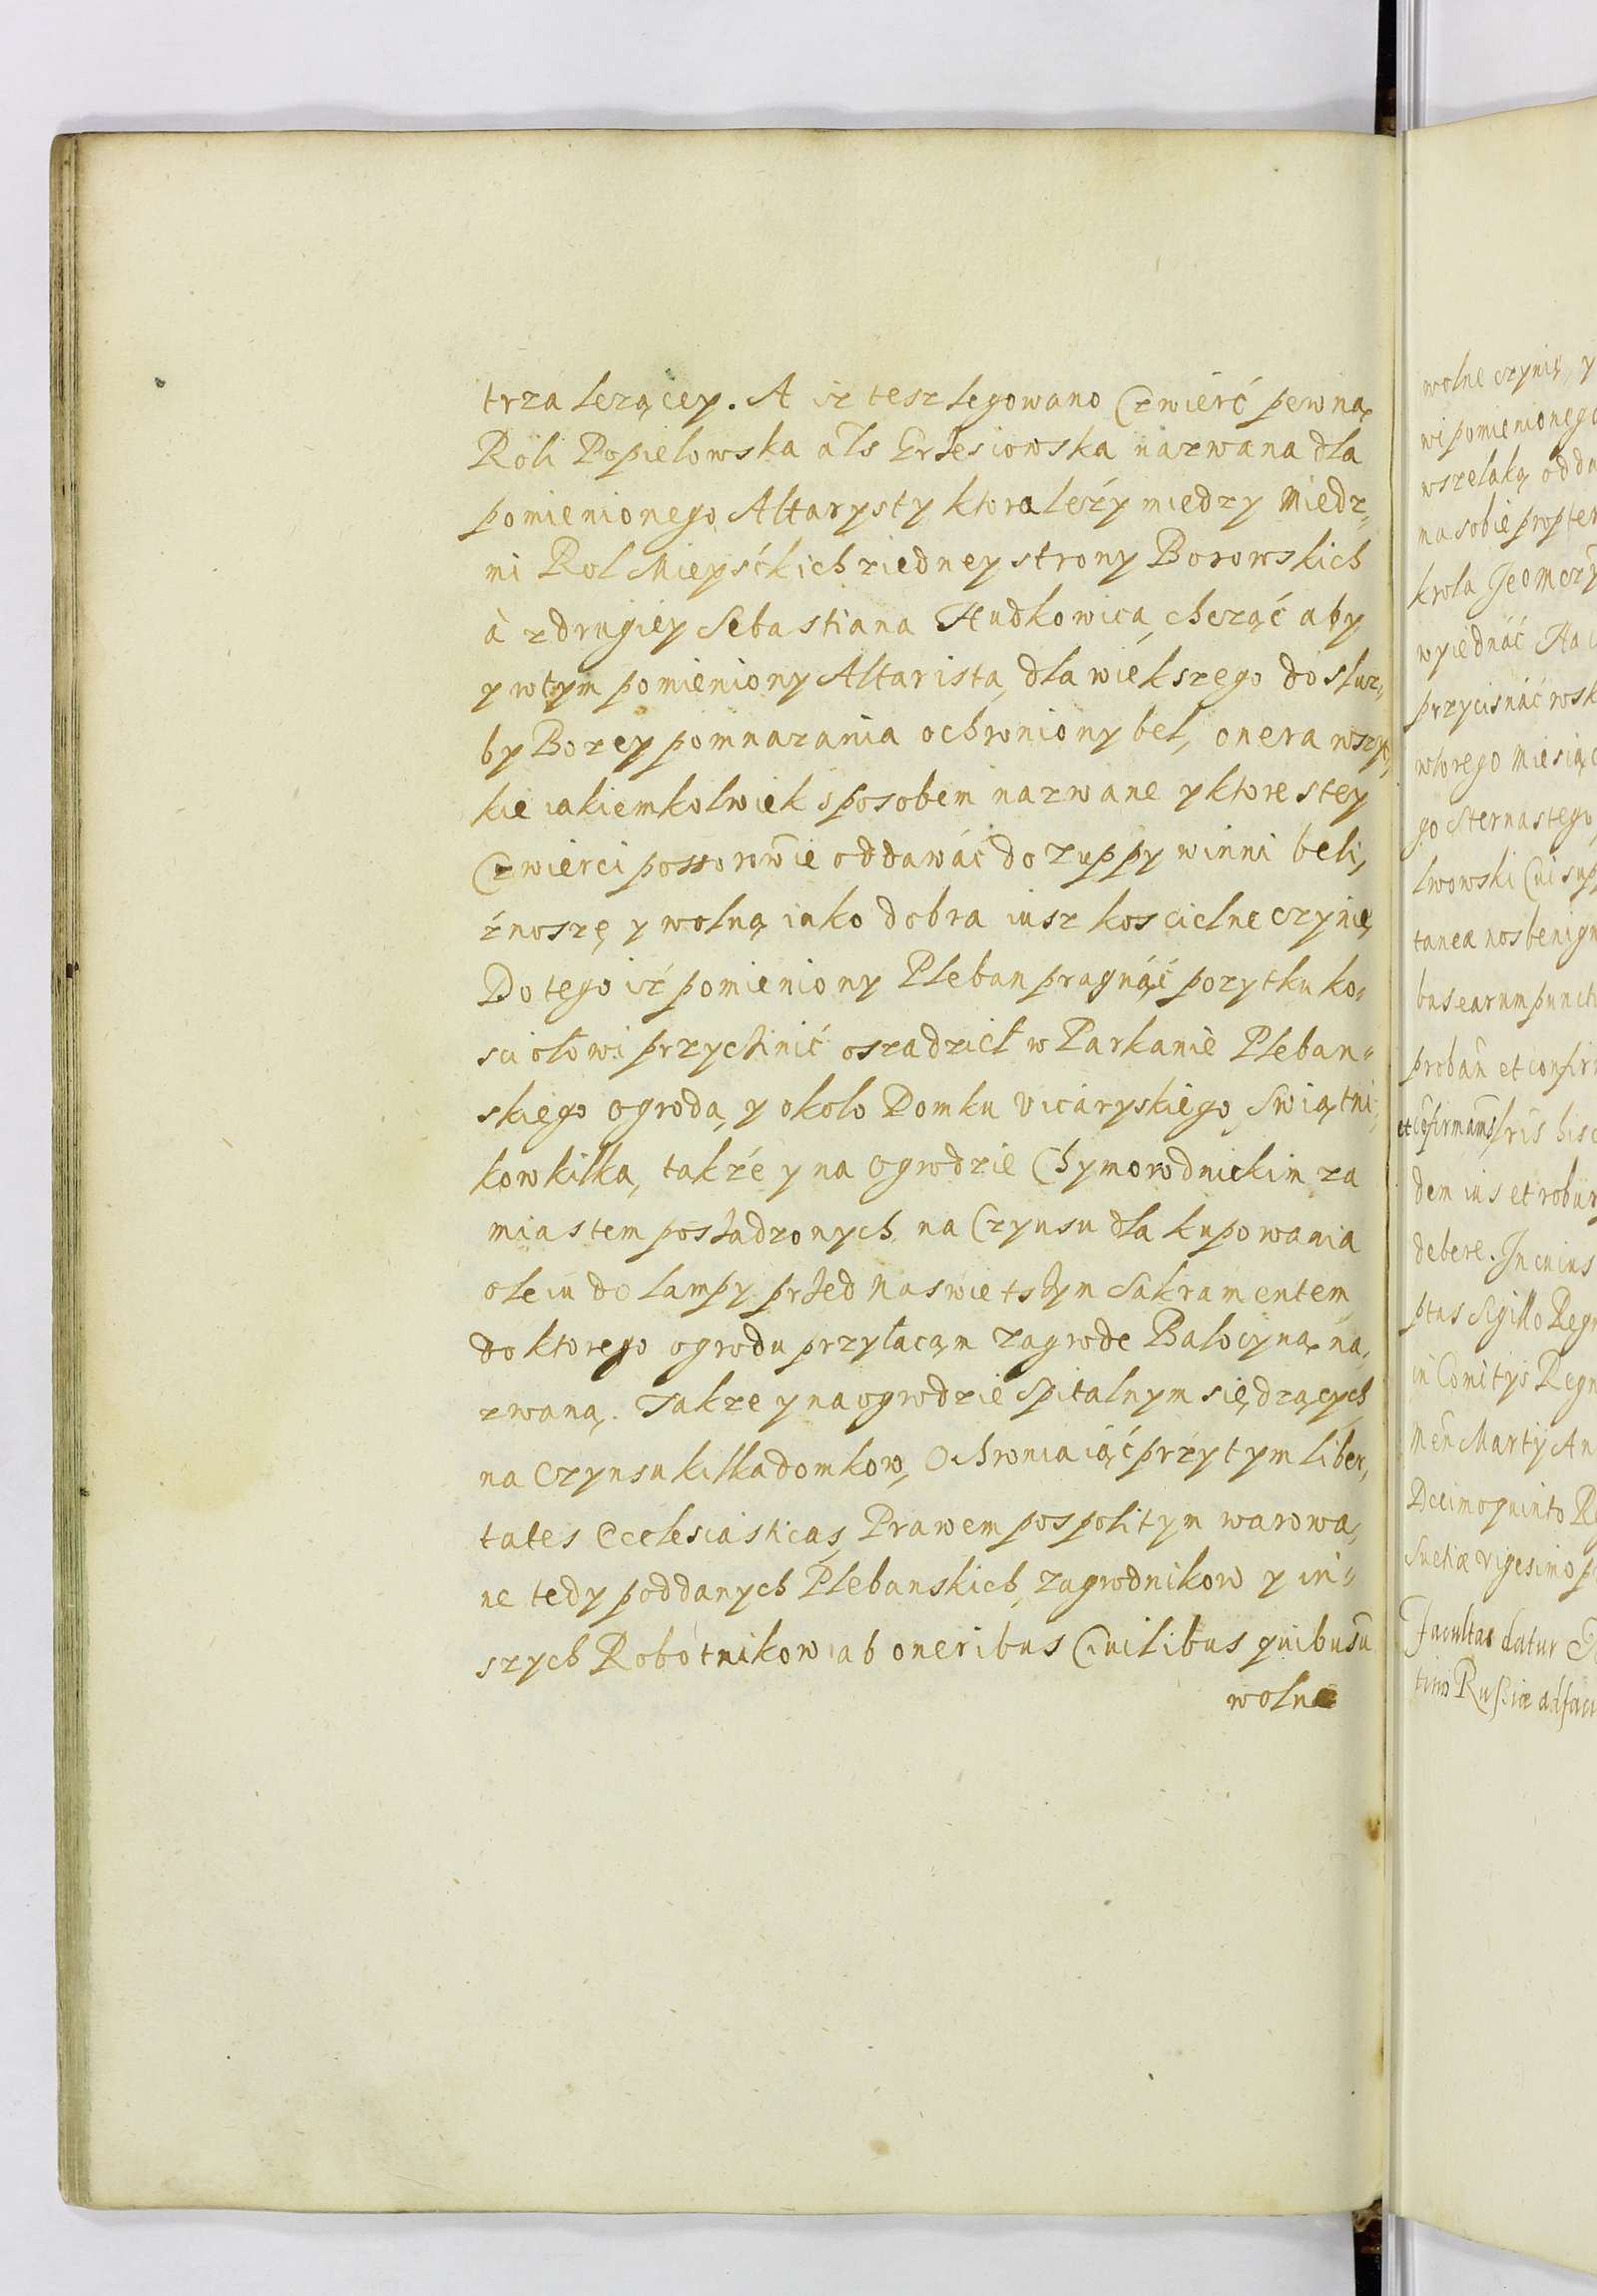 trza lezącey. A iz tesz legowano Czwierć pewną
Roli Popielowska als Grzesiowska nazwana dla
pomienionego Altarysty ktora leży miedzy Miedz„
mi Rol Mieyśćkich ziedney strony Borowskich
à z drugiey Sebastiana Hudkowica, chcząć aby
y wtym pomieniony Altarista, dla wiekszego do słuz„
by Bozey pomnazania ochroniony beł, onera wszyt„
kie iakiemkolwiek sposobem nazwane y ktore stey
Czwierci possorowie oddawáć do zuppy winni beli,
źnoszę y wolną iako dobra iusz koscielne czynię
Do tego iź pomieniony Pleban pragnąć pozytku ko„
sciołowi przyczinić oszadzieł w Parkanie Pleban„
skiego ogroda, y około Domku vicaryskiego, Swiątni„
kow kilka, takźe y na ogrodzie Chymorodnickim za
miastem poszadzonych na Czynsu dla kupowania
oleiu do lampy przed Naswietszym Sakramentem
do ktorego ogrodu przyłacąm zagrode Balocyną na„
zwaną. Takze y na ogrodzie Spitalnym siędzących
na Czynsu kilka domkow, Ochroniaiąć przy tym liber„
tates Ecclesiasticas, Prawem pospolitym warowa„
ne tedy poddanych Plebanskich, zagrodnikow y in„
szych Robótnikow ab oneribus Ciuilibus quibusu
wolne
wolne czynię, y
wi pomienionego
wszelaką odda
na sobie propter
krola Jeo Mczy
wyiednáć Na
przycisnáć rosk
wtorego Miesiąc
go Sternastego
lwowski Cui sup
tanea nos benign
bus earum puncti
proban et confir
et cofirmams lris hisc
dem ius et robur
debere. In cuius
ptus Sigillo Regn
in Comitys Regn
Men Marty An
Decimoquinto Re
Suetiæ vigesimo p
Facultas datur
tino Russiæ ad fac